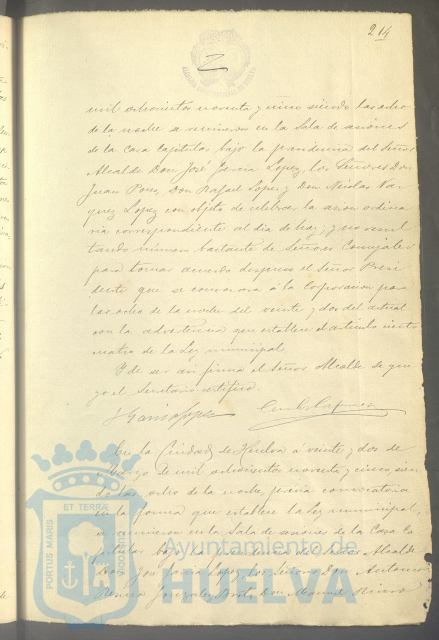 214
mil ochocientos noventa y cinco siendo las ocho
de la noche se reunieron en la Sala de sesiones
de la Casa Capitular bajo la presidencia del Señor
Alcalde Don José García Lopez, los Señores Don
Juan Pons, Don Rafael Lopez y Don Nicolas Vaz-
quez Lopez con objeto de celebrar la sesion ordina-
ria correspondiente al dia de hoy; y no resul
tando número bastante de Señores Concejales
para tomar acuerdo dispuso el Señor Presi
dente que se convocara á la Corporacion para
las ocho de la noche del veinte y dos del actual
con la advertencia que establece el artículo ciento
cuatro de la Ley municipal.
Y de ser así firma el Señor Alcalde de que
yo el Secretario certifico.
J García Lopez
En la Ciudad de Huelva á veinte y dos de
Marzo de mil ochocientos noventa y cinco, sien
do las ocho de la noche, previa convocatoria
en la forma que establece la Ley municipal,
se reunieron en la Sala de sesiones de la Casa Ca
pitular bajo la presidencia del Señor Alcalde
Don José García Lopez los Señores Don Antonio
García Gonzalez, Don Manuel Rivero
PORTUS MARIS
ET TERRAE
CUSTODIA
Ayuntamiento de
HUELVA